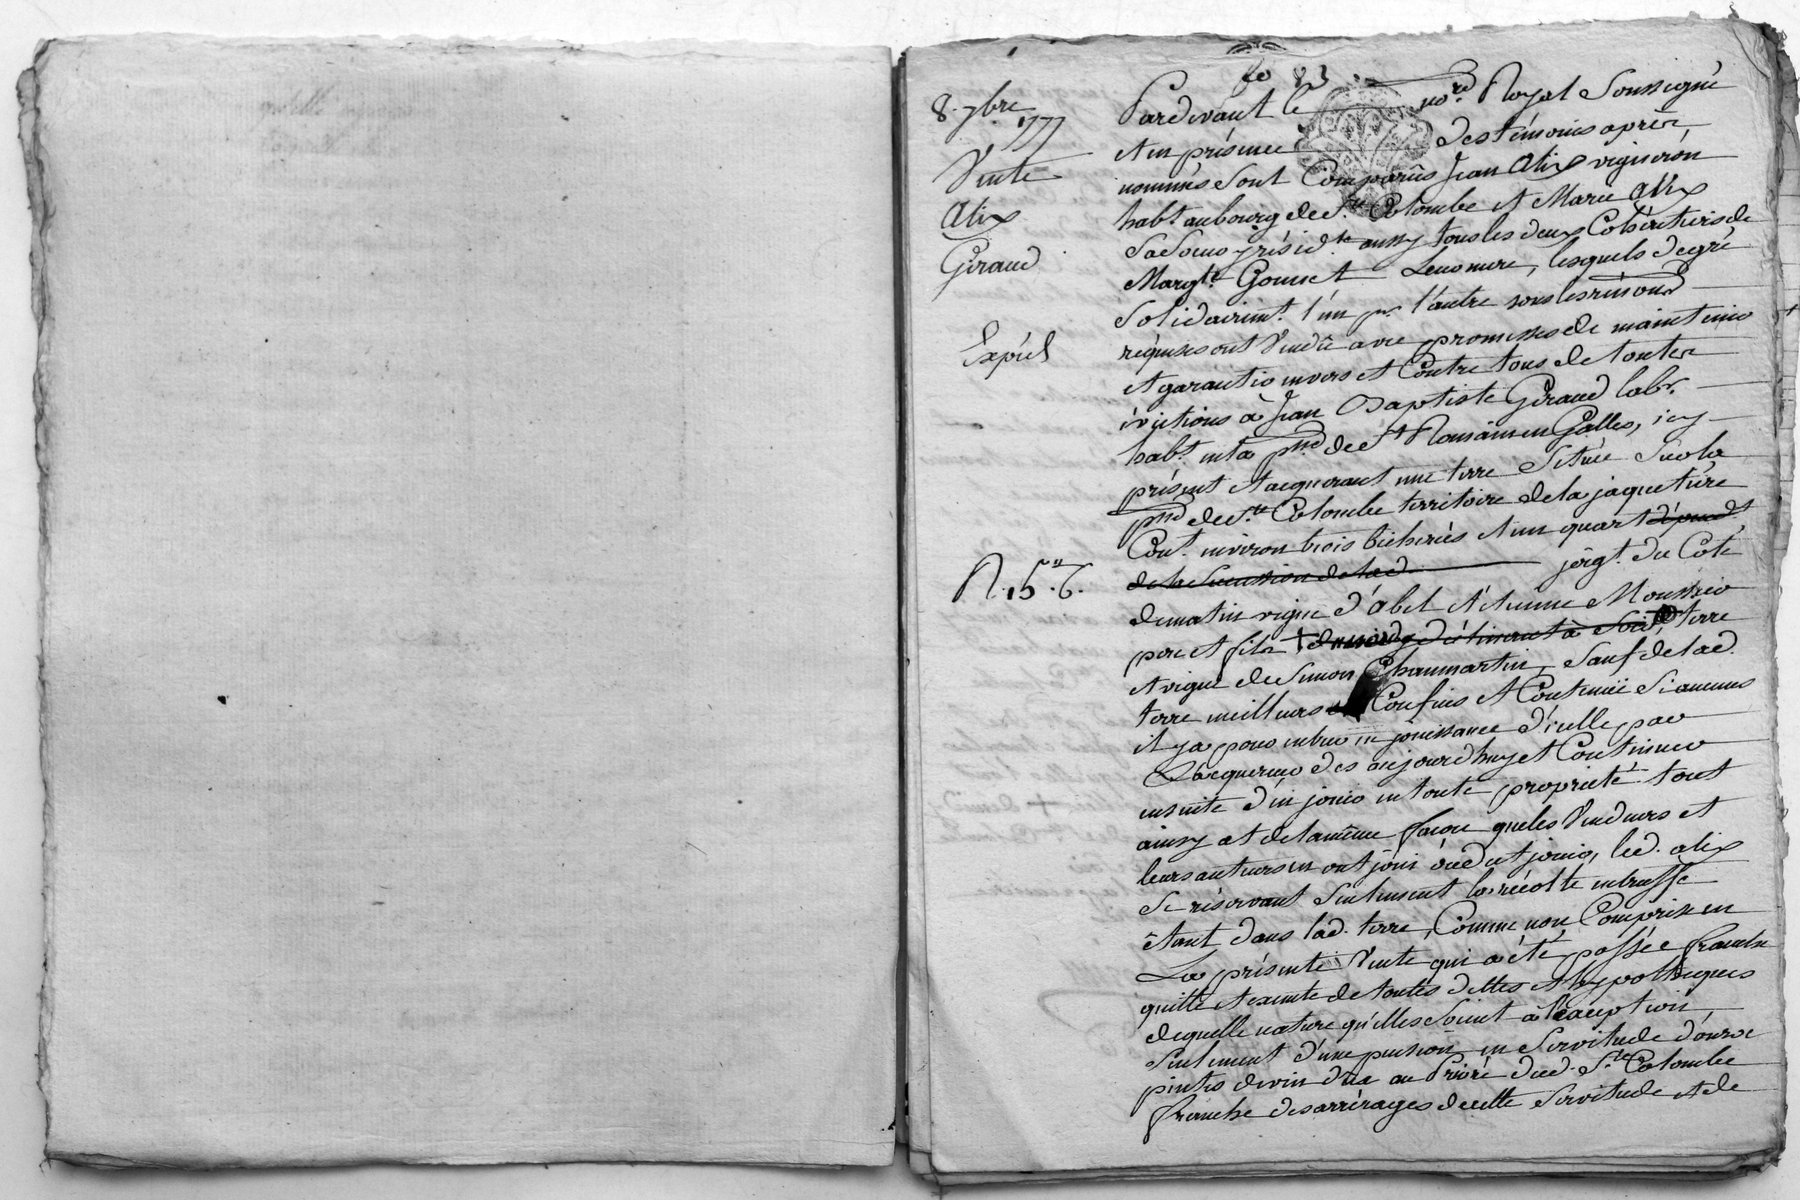 fo 83
8. 7bre
1777
Vente
Alix
Giraud
Expéd
R. 15.ll 6.
Pardevant le no.re Royal soussigné
et en présence des témoins après
nommés sont comparus Jean Alix vigneron
habt au bourg de Ste Colombe et Marie Alix
sa soeur y résidte aussy tous les deux cohéritiers de
Margte Gonnet leur mere, lesquels de gré
solidairemt. l'un pr. l'autre sous les renond
requises ont vendû avec promesses de maintenir
et garantir envers et contre tous de toutes
évictions à Jean Baptiste Giraud labr.
habt. en la psse de St Romain en Galles, icy
présent et acquerant une terre située sur la
psse de Ste Colombe territoire de la jaquetiére
cont. environ trois bicherées et un quart dépendt
de la succession de lad. joigt. du coté
de matin vigne d'abel et étienne Moussier
pere et fils terre
et vigne de Simon Chaumartin, sauf de lad.
terre meilleurs confins et contenüe si aucuns
il y a pour entrer en jouissance d'icelle par
l'acquereur des aujourdhuy et continuer
ensuite d'en jouir en toute proprieté tout
ainsy et de la même façon que les vendeurs et
leurs auteurs en ont joui ou dut jouir, led. alix
se réservant seulement la récolte en truffe
étant dans lad. terre, comme non comprise en
la présente vente qui a été passée franche
quitte et exempte de toutes dettes et hypotheques
de quelle nature qu'elles soient à l'éxception
seulement d'une pension en servitude d'onze
pintes de vin düe au Prioré dud. Ste Colombe
franche des arrérages de cette servitude et de